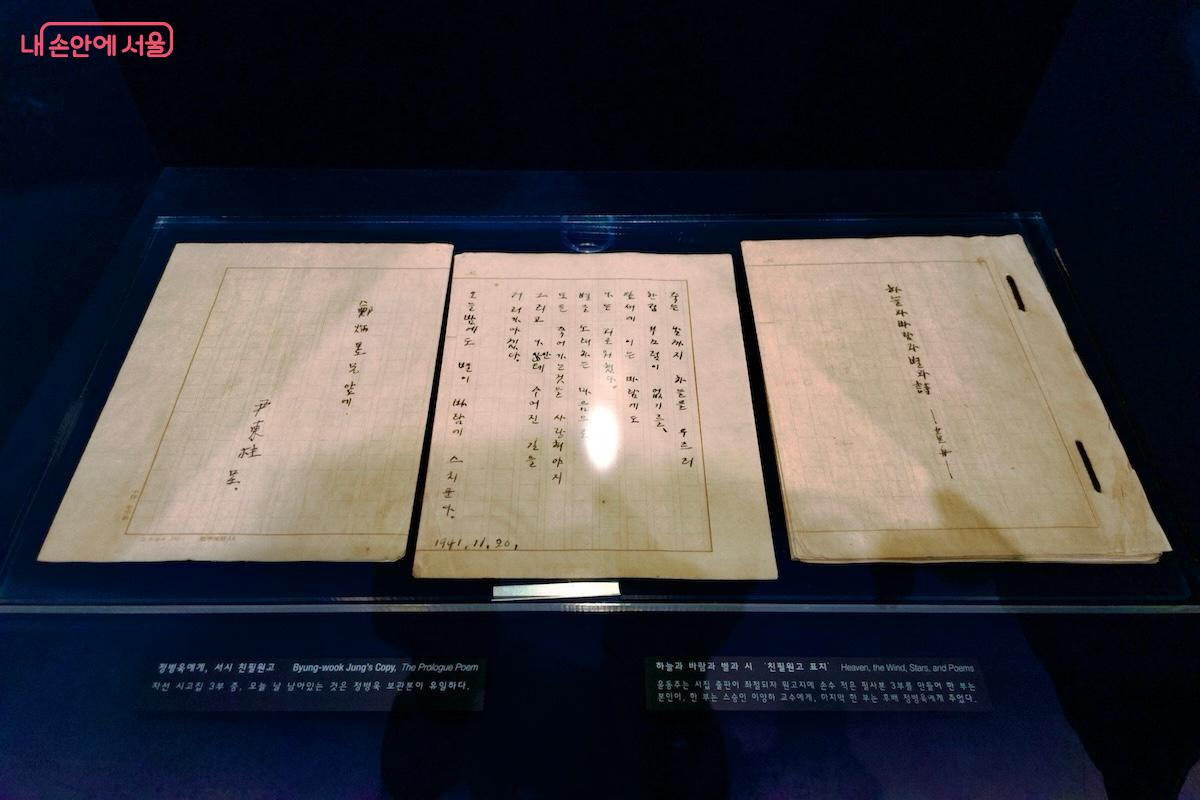 내 손안에 서울
鄭炳昱 兄 앞에
尹東柱 呈.
죽는 날까지 하늘을 우르러
한점 부끄럼이 없기를,
잎새에 이는 바람에도
나는 괴로워했다.
별을 노래하는 마음으로
모든 죽어가는것을 사랑해야지
그리고 나안테 주어진 길을
거러가야겠다.
오늘밤에도 별이 바람에 스치운다.
1941.11.20.
하늘과바람과별과詩
정병욱에게, 서시 친필원고 Byung-wook Jung's Copy, The Prologue Poem
자선 시고집 3부 중, 오늘 날 남아있는 것은 정병욱 보관본이 유일하다.
하늘과 바람과 별과 시 '친필원고 표지' Heaven, the Wind, Stars, and Poems
윤동주는 시집 출판이 좌절되자 원고지에 손수 적은 필사본 3부를 만들어 한 부는
본인이, 한 부는 스승인 이양하 교수에게, 마지막 한 부는 후배 정병욱에게 주었다.